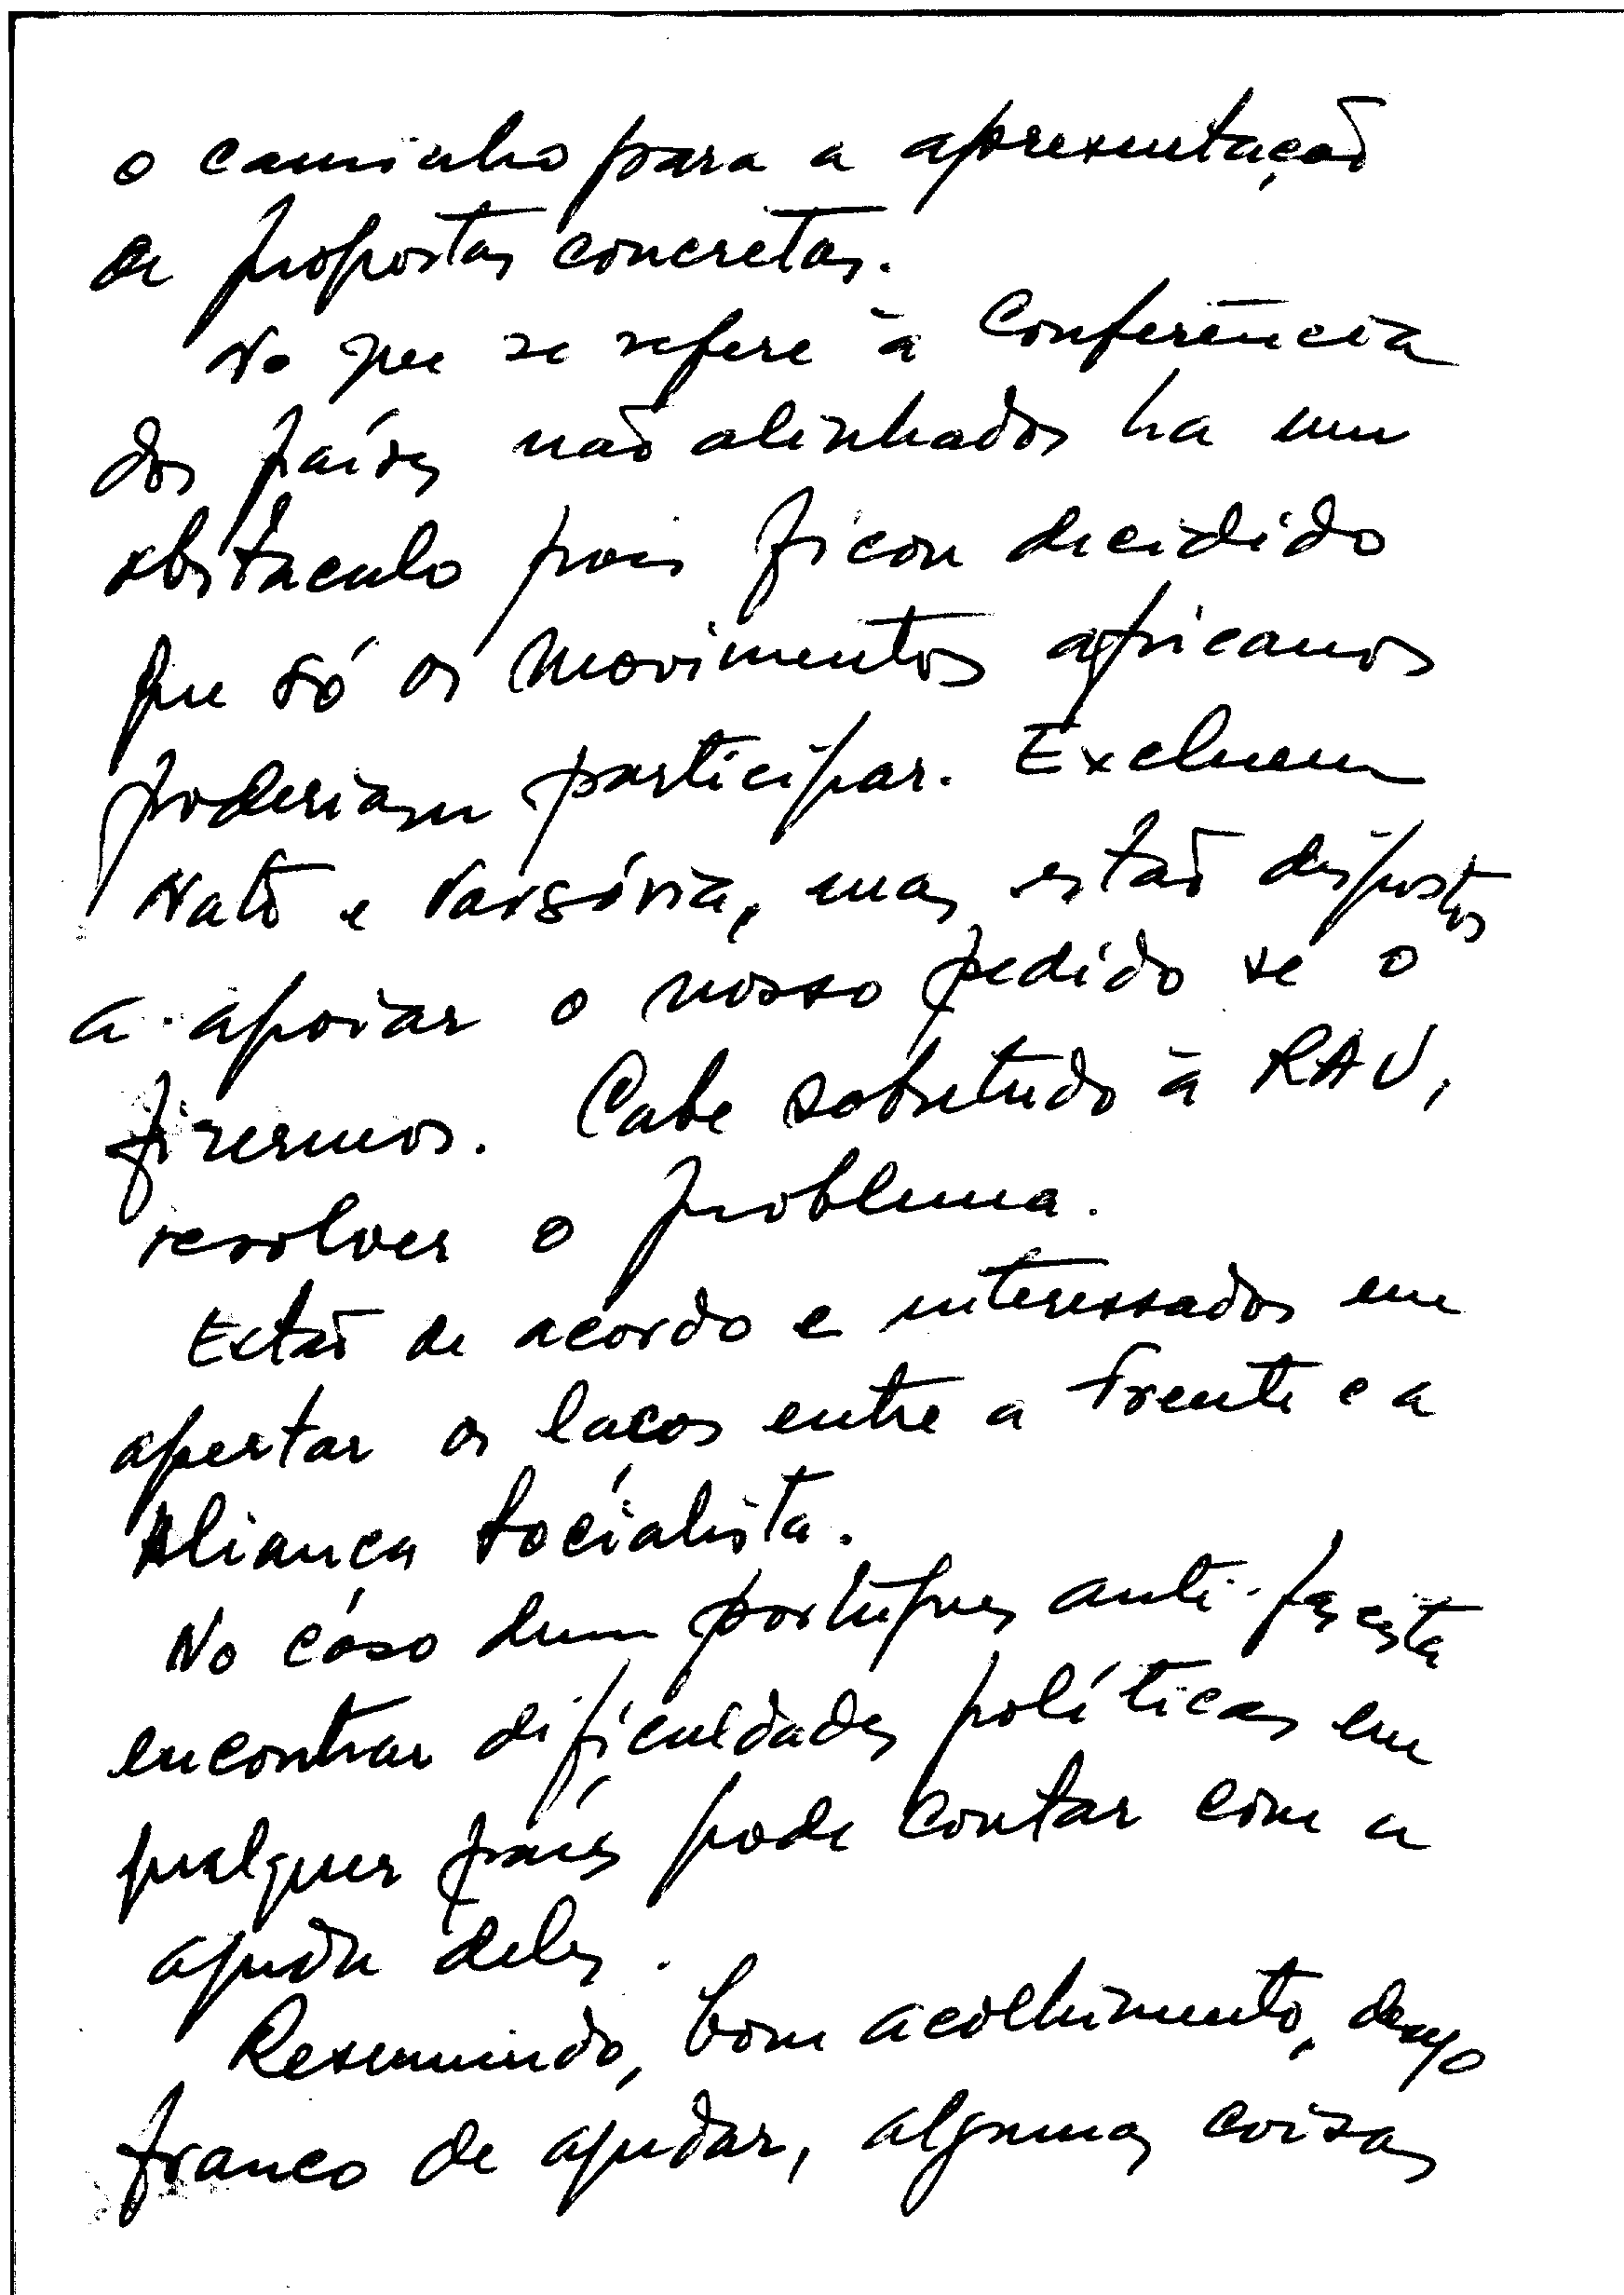 o caminho para a apresentação
de propostas concretas.
No que se refere à Conferência
dos países não alinhados ha um
obstáculo pois ficou decidido
que só os movimentos africanos
poderiam participar. Excluem
Nato e Varsóvia, mas estão dispostos
a apoiar o nosso pedido se o
fizermos. Cabe sobretudo à RAU,
resolver o problema.
Estão de acordo e interessados em
apertar os laços entre a Frente e a
Aliança Socialista.
No caso dum português anti-fascista
encontrar dificuldades políticas em
qualquer país pode contar com a
ajuda deles.
Resumindo, bom acolhimento, desejo
franco de ajudar, algumas coisas